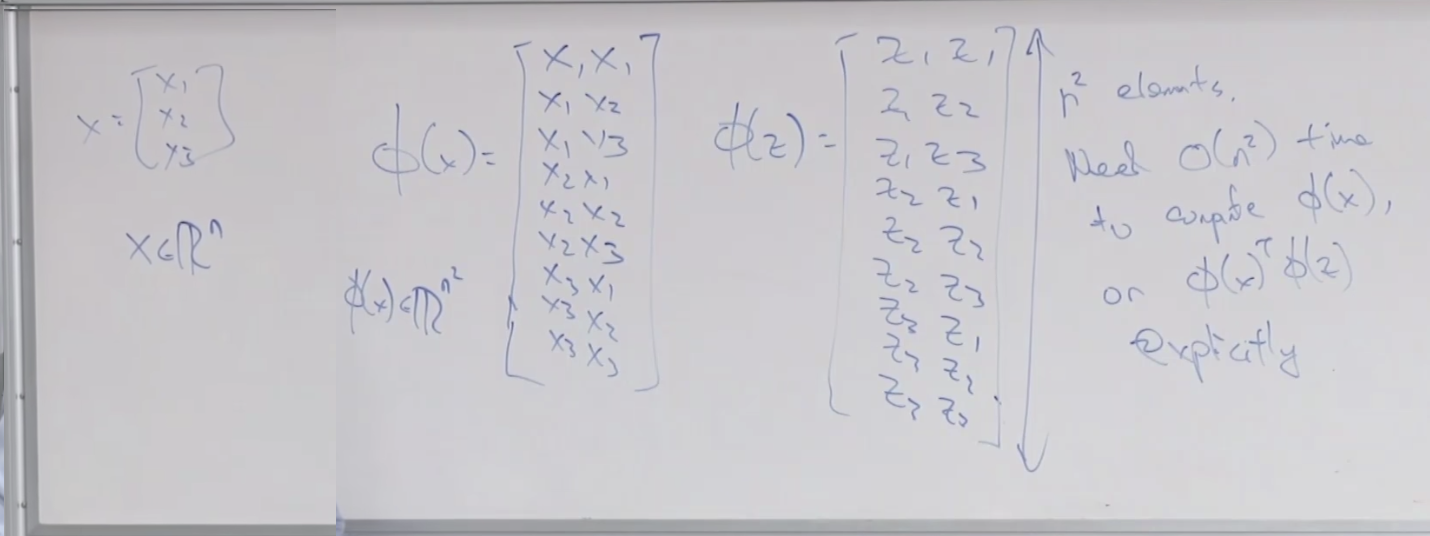 x = [x₁
x₂
x₃]
x ∈ ℝⁿ
φ(x) = [x₁ x₁
x₁ x₂
x₁ x₃
x₂ x₁
x₂ x₂
x₂ x₃
x₃ x₁
x₃ x₂
x₃ x₃]
φ(x) ∈ ℝⁿ²
φ(z) = [z₁ z₁
z₁ z₂
z₁ z₃
z₂ z₁
z₂ z₂
z₂ z₃
z₃ z₁
z₃ z₂
z₃ z₃]
n² elements.
Need O(n²) time
to compute φ(x),
or φ(x)ᵀ φ(z)
explicitly